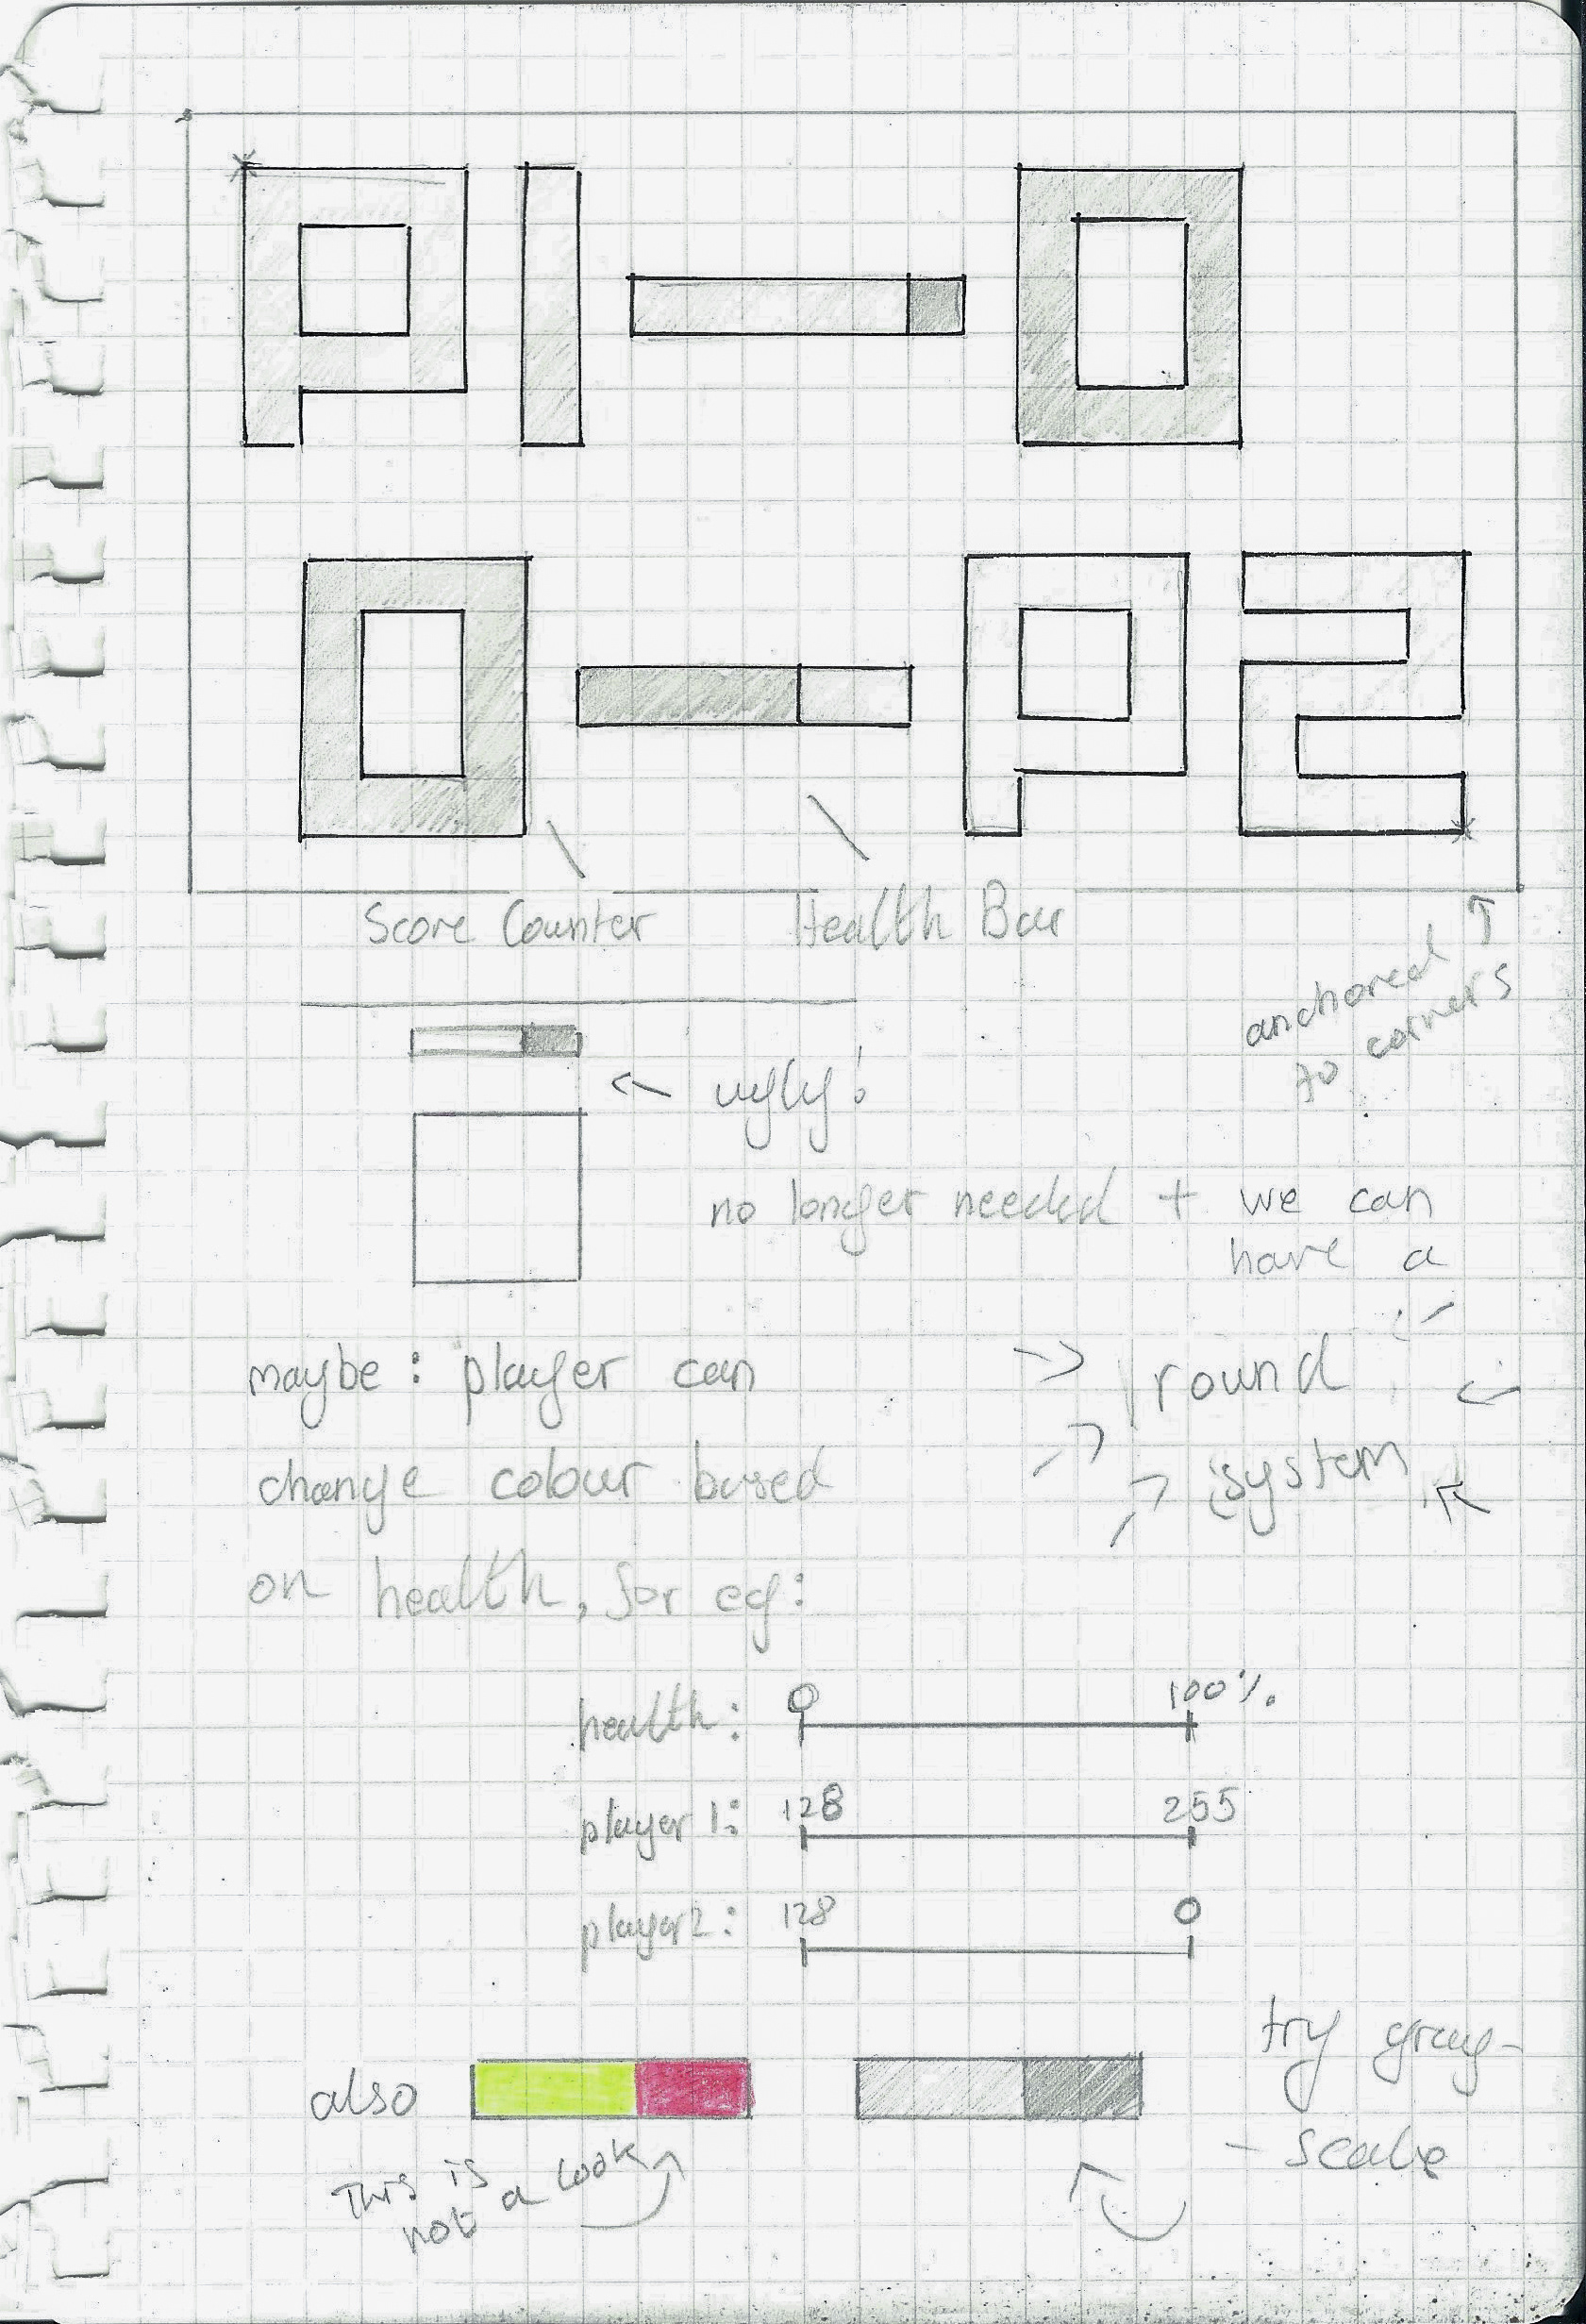 P1 0
0 P2
Score Counter
Health Bar
anchored
to corners
ugly!
no longer needed + we can
have a
round
system
maybe: player can
change colour based
on health, for eg:
health: 0 100%
player 1: 128 255
player 2: 128 0
also
This is
not a look
try gray-
- scale